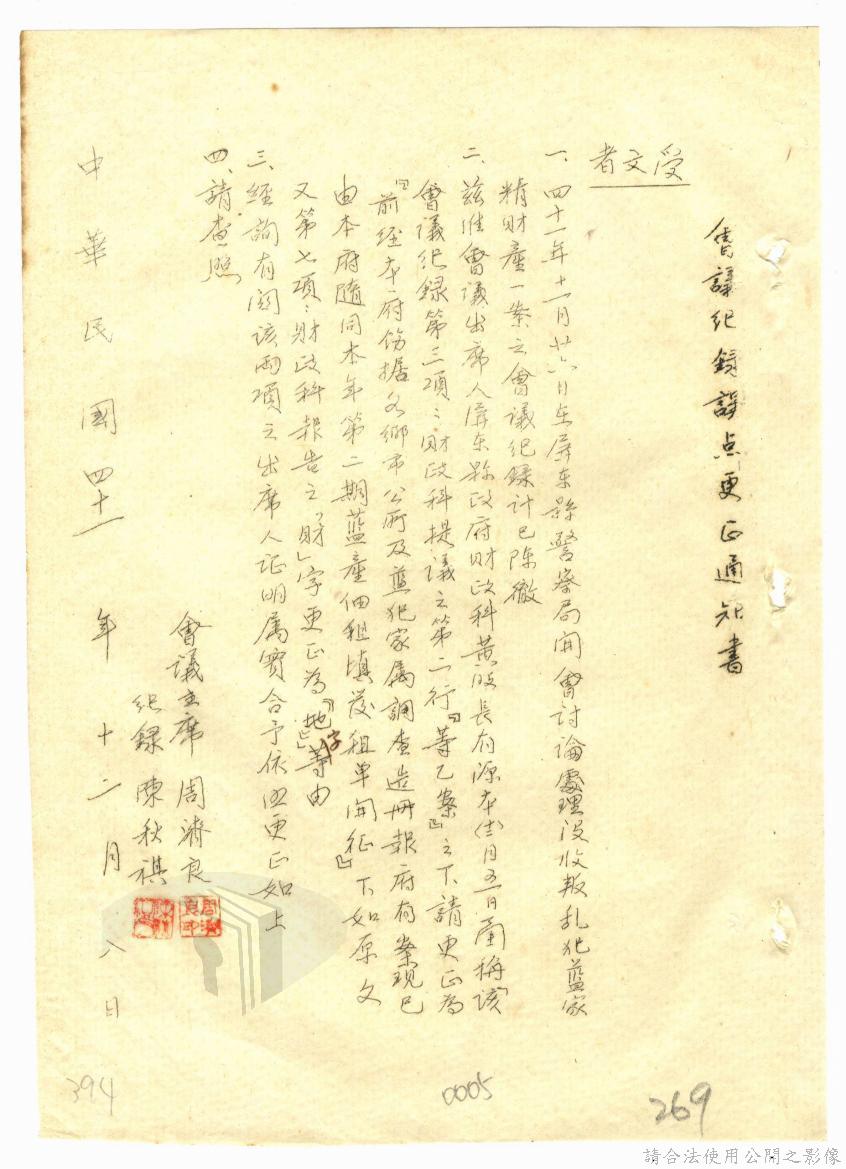 會議紀錄誤点更正通知書
受文者
一、四十一年十一月廿六日在屏東縣警察局開會討論處理沒收叛乱犯藍家
精財產一案之會議紀錄計已陳徹
二、茲准會議出席人屏東縣政府財政科黃股長有源本(十二)月五日面稱「該
會議紀錄第三項：財政科提議之第二行『等乙案』之下請更正為
『前經本府飭據各鄉市公所及藍犯家屬調查造冊報府有案現已
由本府隨同本年第二期藍產佃租填發租單開征』下如原文
又第七項：財政科報告之「財」字更正為『地』字等由
三、經詢有關該兩項之出席人证明屬實合予依照更正如上
四、請查照
會議主席 周濟良
紀錄 陳秋祺
中華民國四十一年十二月八日
394
0005
269
請合法使用公開之影像